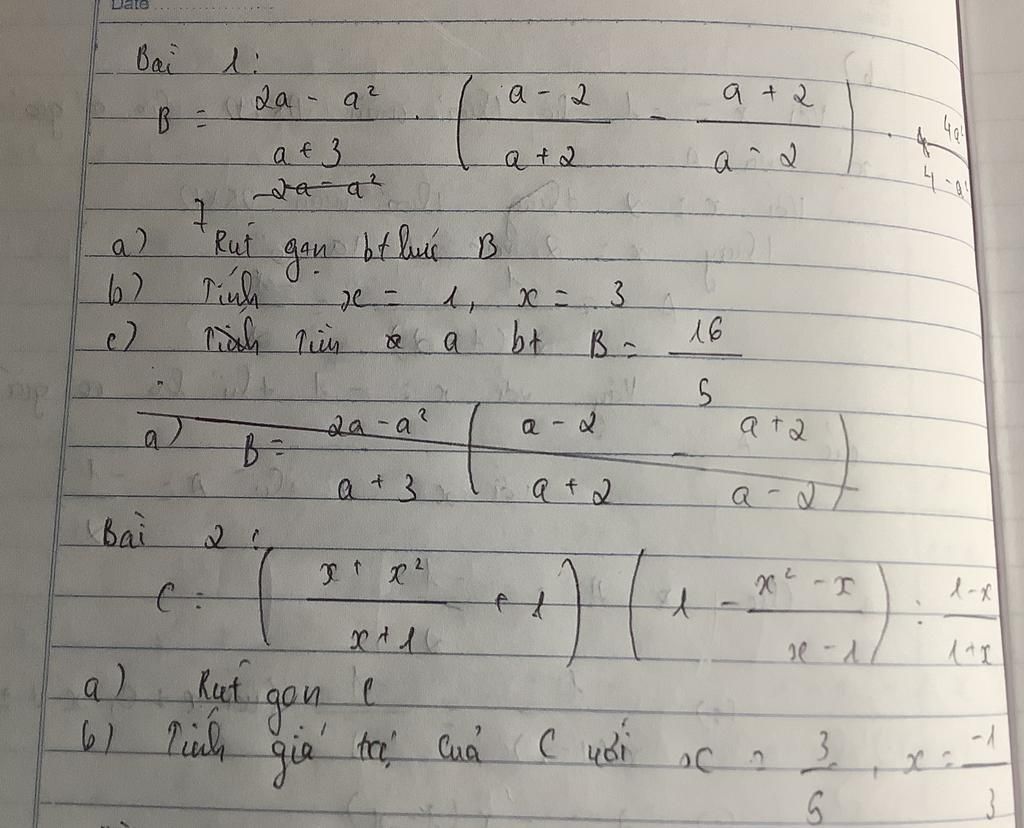 Date
Bài 1:
B = \frac{2a - a^2}{a + 3} . \left( \frac{a - 2}{a + 2} - \frac{a + 2}{a - 2} \right) .
2a - a^2
a) Rút gọn bt thức B
b) Tính x = 1, x = 3
c) a bt B = \frac{16}{5}
a) B = \frac{2a - a^2}{a + 3} \left( \frac{a - 2}{a + 2} - \frac{a + 2}{a - 2} \right)
Bài 2:
C = \left( \frac{x + x^2}{x + 1} + 1 \right) \left( 1 - \frac{x^2 - x}{x - 1} \right) : \frac{1 - x}{1 + x}
a) Rút gọn C
b) Tính giá trị của C với x = \frac{3}{5}, x = \frac{-1}{3}